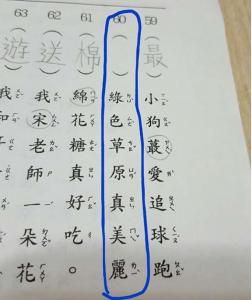 59
（最）
小狗蕞愛追球跑
60
（ ）
綠色草原真美麗
61
（棉）
綿花糖真好吃。
62
（送）
我宋老師一朵花
63
（遊）